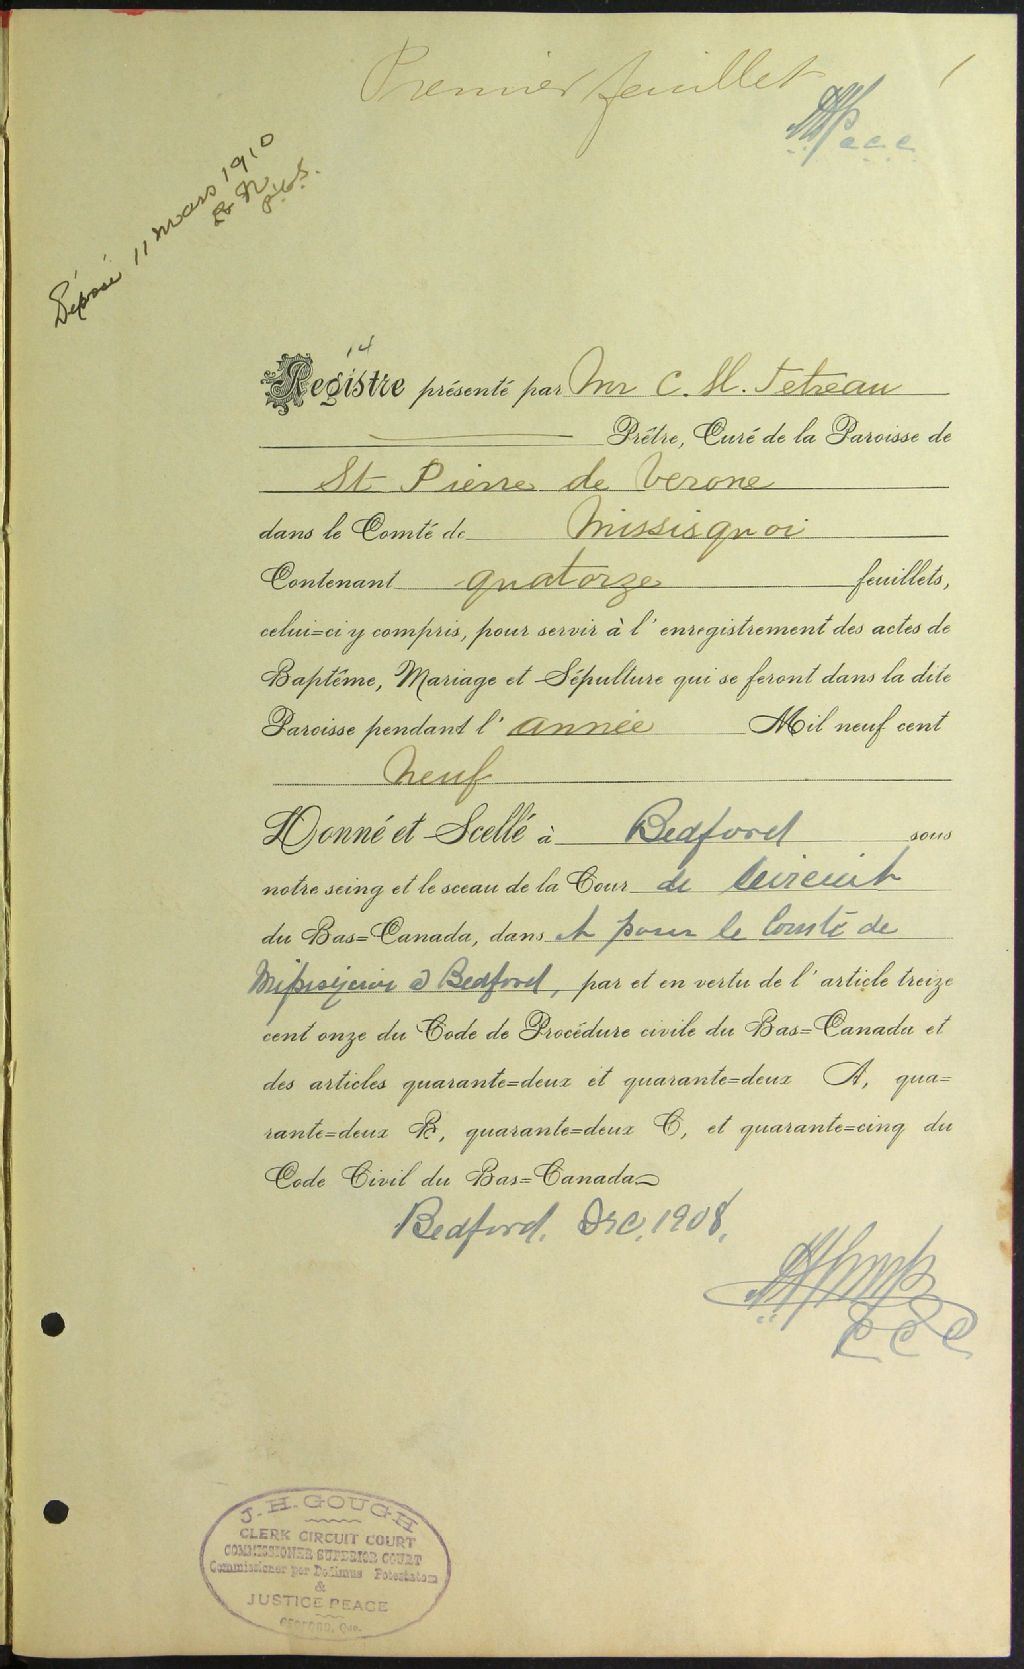 Premier feuillet 1
c.c.c.
Déposé 11 mars 1910
14
Registre présenté par Mr C. H. Tetreau
Prêtre, Curé de la Paroisse de
St Pierre de Verone
dans le Comté de Missisquoi
Contenant quatorze feuillets,
celui=ci y compris, pour servir à l'enregistrement des actes de
Baptême, Mariage et Sépulture qui se feront dans la dite
Paroisse pendant l'année Mil neuf cent
neuf
Donné et Scellé à Bedford sous
notre seing et le sceau de la Cour de Circuit
du Bas=Canada, dans et pour le Comté de
Missisquoi à Bedford, par et en vertu de l'article treize
cent onze du Code de Procédure civile du Bas=Canada et
des articles quarante=deux et quarante=deux A, qua=
rante=deux B, quarante=deux C, et quarante=cinq du
Code Civil du Bas=Canada
Bedford, Dec. 1908.
CCC
J. H. GOUGH
CLERK CIRCUIT COURT
COMMISSIONER SUPERIOR COURT
Commissioner per Dedimus Potestatem
&
JUSTICE PEACE
BEDFORD, Que.